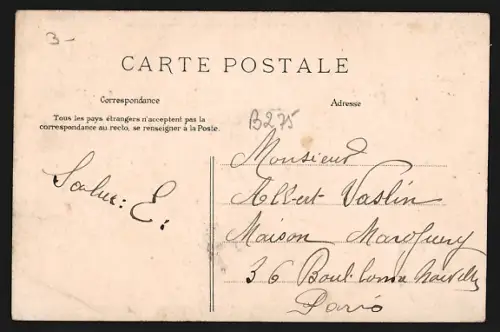 3-
CARTE POSTALE
Correspondance
Adresse
Tous les pays étrangers n'acceptent pas la
correspondance au recto, se renseigner à la Poste.
B275
Salut: E.
Monsieur
Albert Vaslin
Maison Marguery
36 Boul. Bonne Nouvelle
Paris